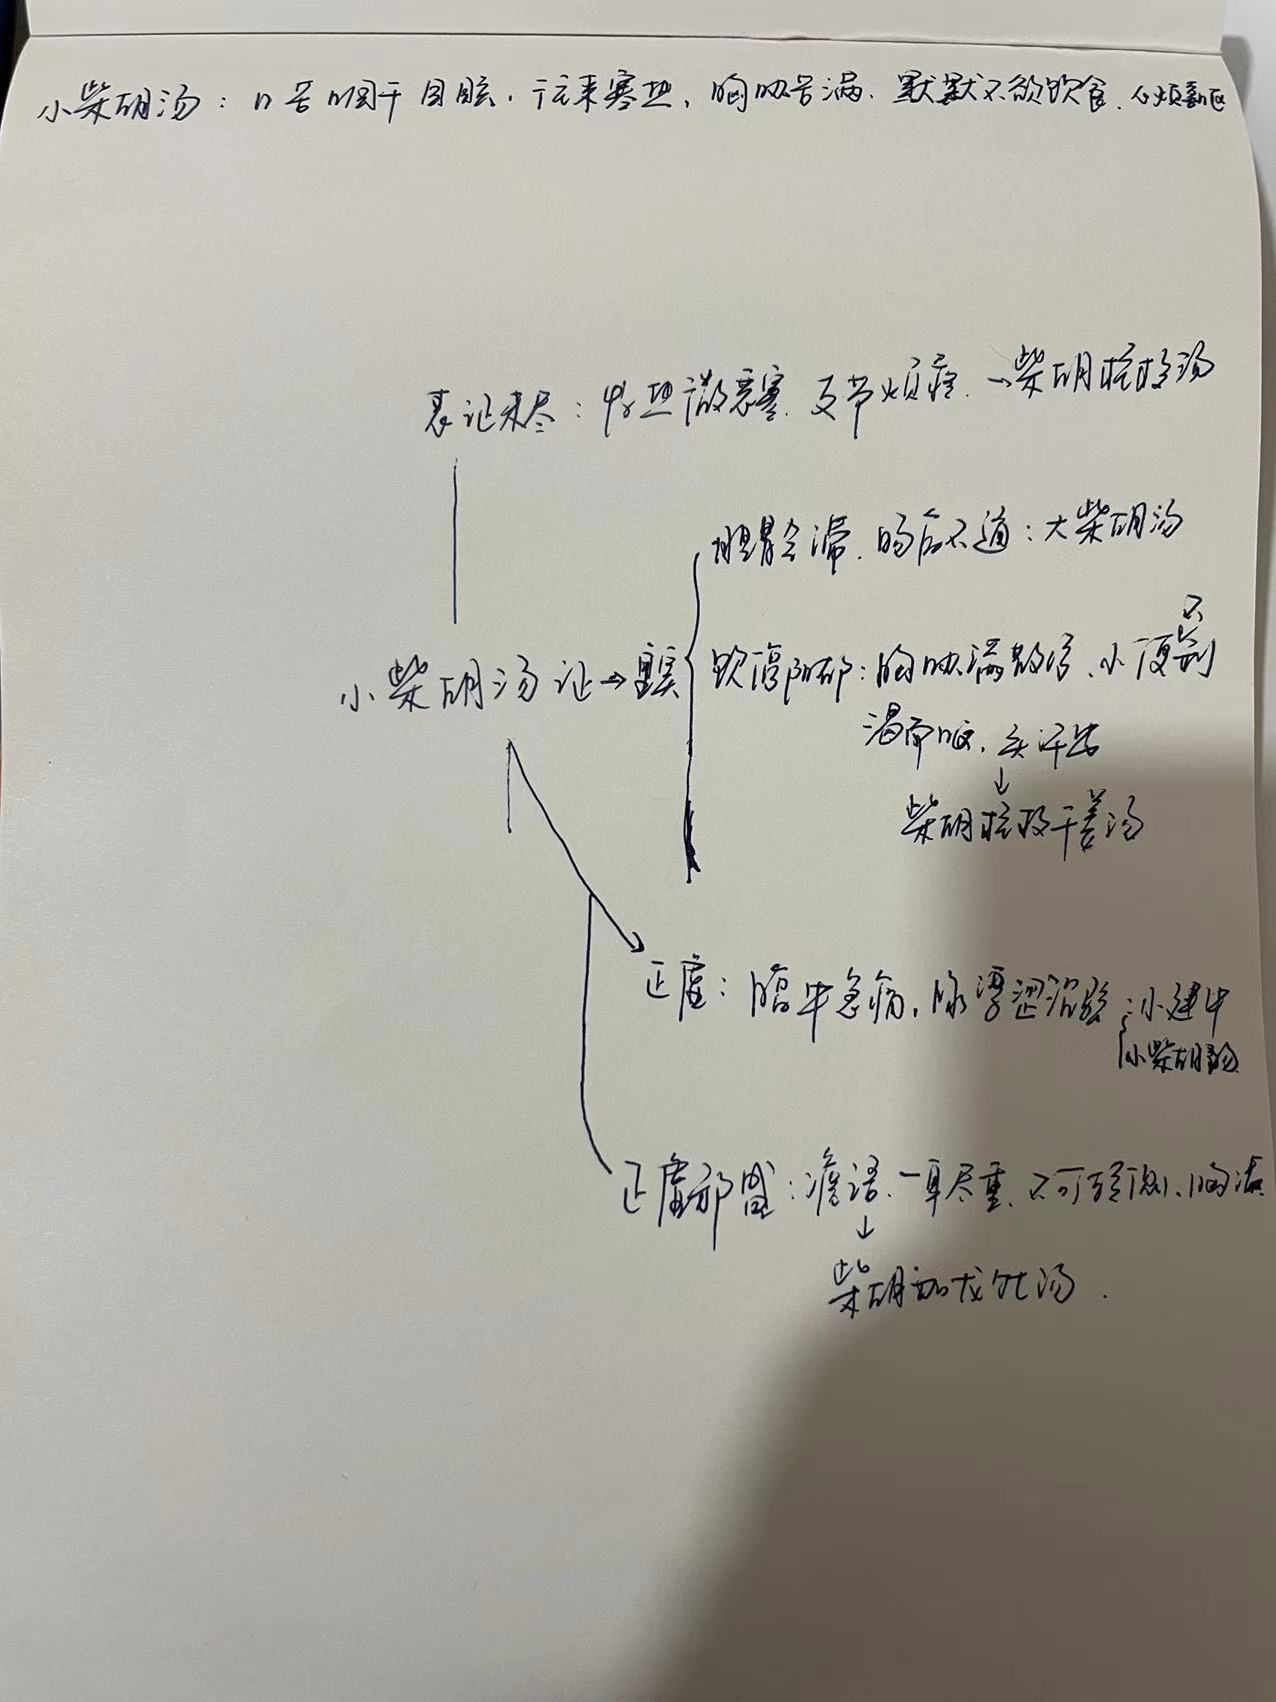 小柴胡汤：口苦咽干目眩，往来寒热，胸胁苦满，默默不欲饮食，心烦喜呕
表证未尽：发热微恶寒，支节烦疼→柴胡桂枝汤
胆胃合滞，肠腑不通：大柴胡汤
小柴胡汤证→里实
饮停阳郁：胸胁满微结，小便不利
渴而呕，头汗出
↓
柴胡桂枝干姜汤
正虚：腹中急痛，脉浮涩沉弦：小建中
小柴胡汤
正虚邪盛：谵语，一身尽重，不可转侧，胸满
↓
柴胡加龙牡汤．